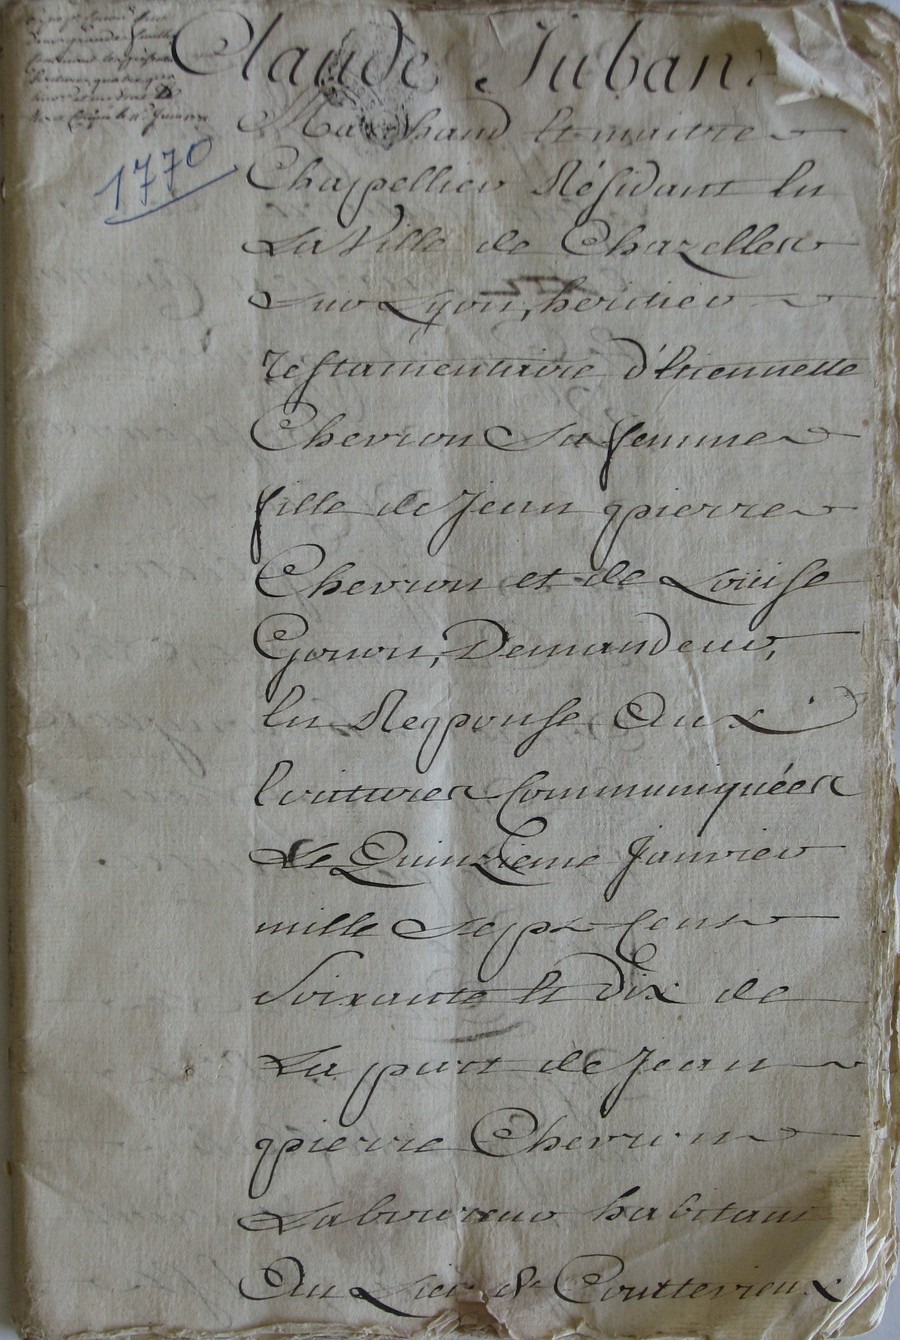 1770
Claude Juban
Marchand et maitre
Chappellier Résidant en
La Ville de Chazelles
sur Lyon, heritier
testamentaire d'Etiennette
Chevron sa femme
fille de Jean pierre
Chevron et de Loüise
Gonon, Demandeur,
En Response Aux
Ecritures Communiquées
Le Quinzieme Janvier
mille sept Cent
Soixante et Dix de
La part de Jean
pierre Chevron
Laboureur habitant
Au Lieu de Coutterieux